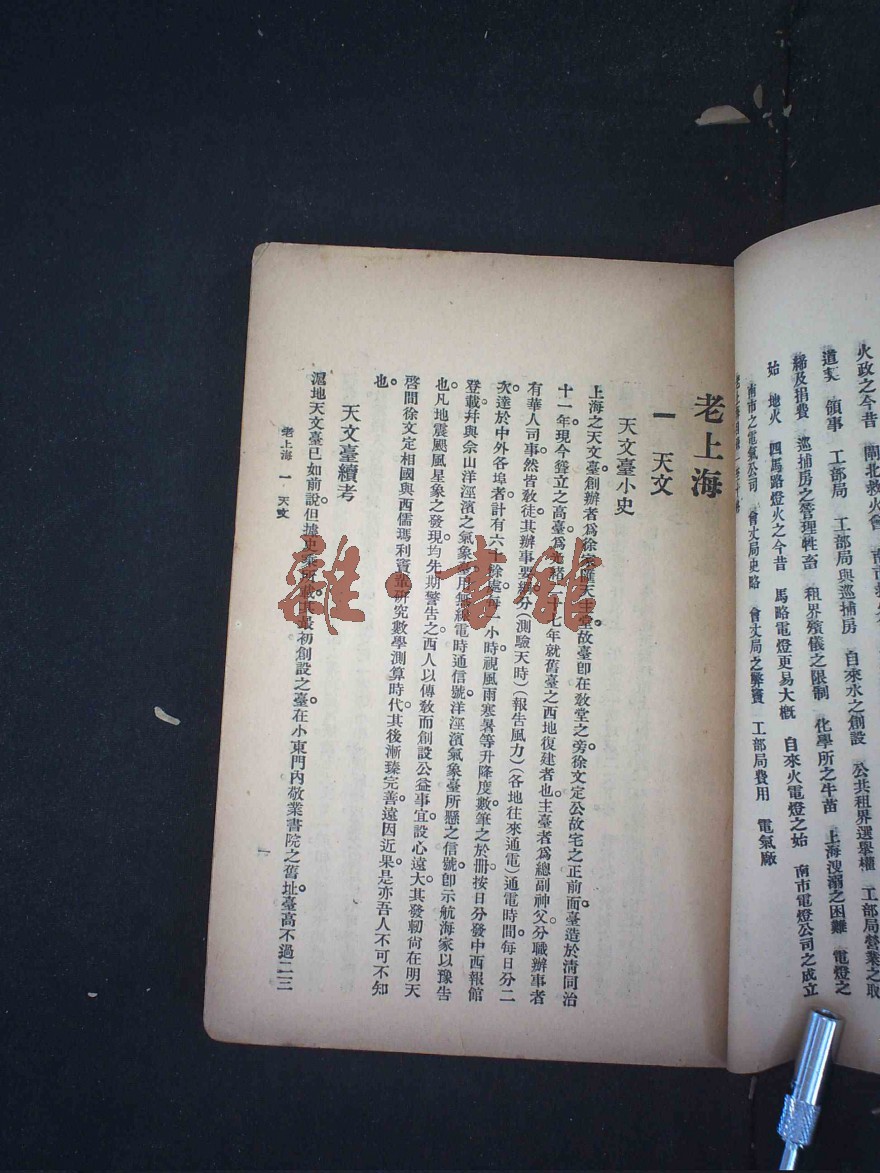 火政之今昔 閘北救火會
道契 領事 工部局 工部局與巡捕房 自來水之創設 公共租界選舉權 工部局營業之取
締及捐費 巡捕房之管理牲畜 租界殯儀之限制 化學所之牛苗 上海洩溺之困難 電燈之
始 地火 四馬路燈火之今昔 馬路電燈更易大概 自來火電燈之始 南市電燈公司之成立
南市之電氣公司 會丈局史略 會丈局之弊竇 工部局費用 電氣廠
老上海
一 天文
天文臺小史
上海之天文臺。創辦者爲徐家匯天主堂。故臺卽在敎堂之旁。徐文定公故宅之正前面。臺造於清同治
十一年。現今聳立之高臺。爲光緒二十七年就舊臺之西地復建者也。主臺者爲總副神父。分職辦事者
有華人司事。然皆敎徒。其辦事要綱分(測驗天時)(報告風力)(各地往來通電)通電時間。每日分二
次。達於中外各埠者。計有六十餘處。每一小時。視風雨寒暑等升降度數。筆之於册。按日分發中西報館
登載。幷與佘山洋涇濱之氣象臺。用無線電時通信號。洋涇濱氣象臺所懸之信號。卽示航海家以豫告
也。凡地震颶風星象之發現。均先期警告之。西人以傳敎而創設公益事宜。設心遠大。其發軔尙在明天
啓間徐文定相國與西儒瑪利竇輩研究數學測算時代。其後漸臻完善。遠因近果。是亦吾人不可不知
也。
天文臺續考
滬地天文臺已如前說。但據史乘所載。其最初創設之臺。在小東門內敬業書院之舊址。臺高不過二三
老上海 一·天文
一
雜·書館